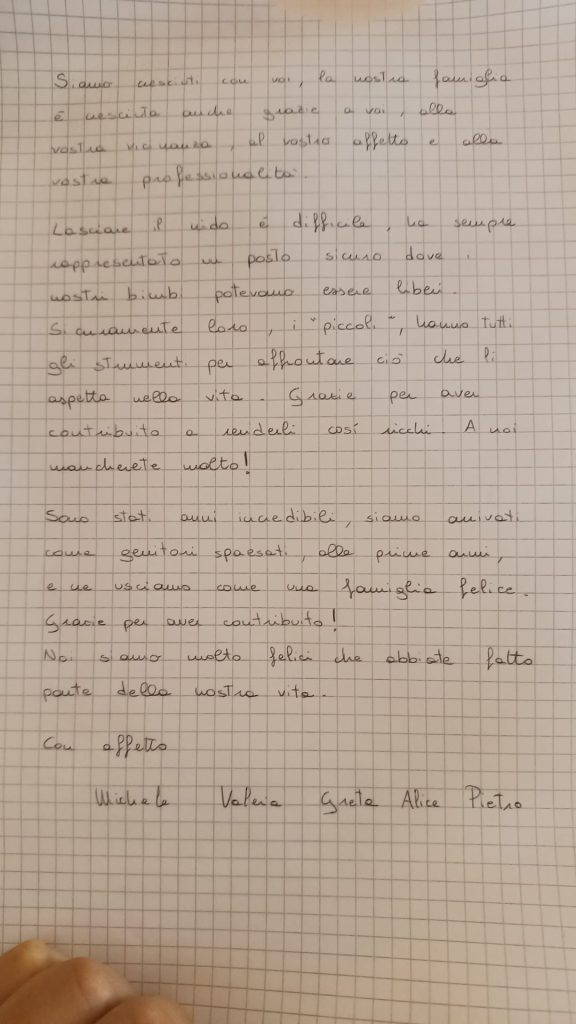 Siamo cresciuti con voi, la nostra famiglia
è cresciuta anche grazie a voi, alla
vostra vicinanza, al vostro affetto e alla
vostra professionalità.
Lasciare il nido è difficile, ha sempre
rappresentato un posto sicuro dove i
nostri bimbi potevano essere liberi.
Sicuramente loro, i "piccoli", hanno tutti
gli strumenti per affrontare ciò che li
aspetta nella vita. Grazie per aver
contribuito a renderli così ricchi. A noi
mancherete molto!
Sono stati anni incredibili, siamo arrivati
come genitori spaesati, alle prime armi,
e ne usciamo come una famiglia felice.
Grazie per aver contribuito!
Noi siamo molto felici che abbiate fatto
parte della nostra vita.
Con affetto
Michele Valeria Greta Alice Pietro